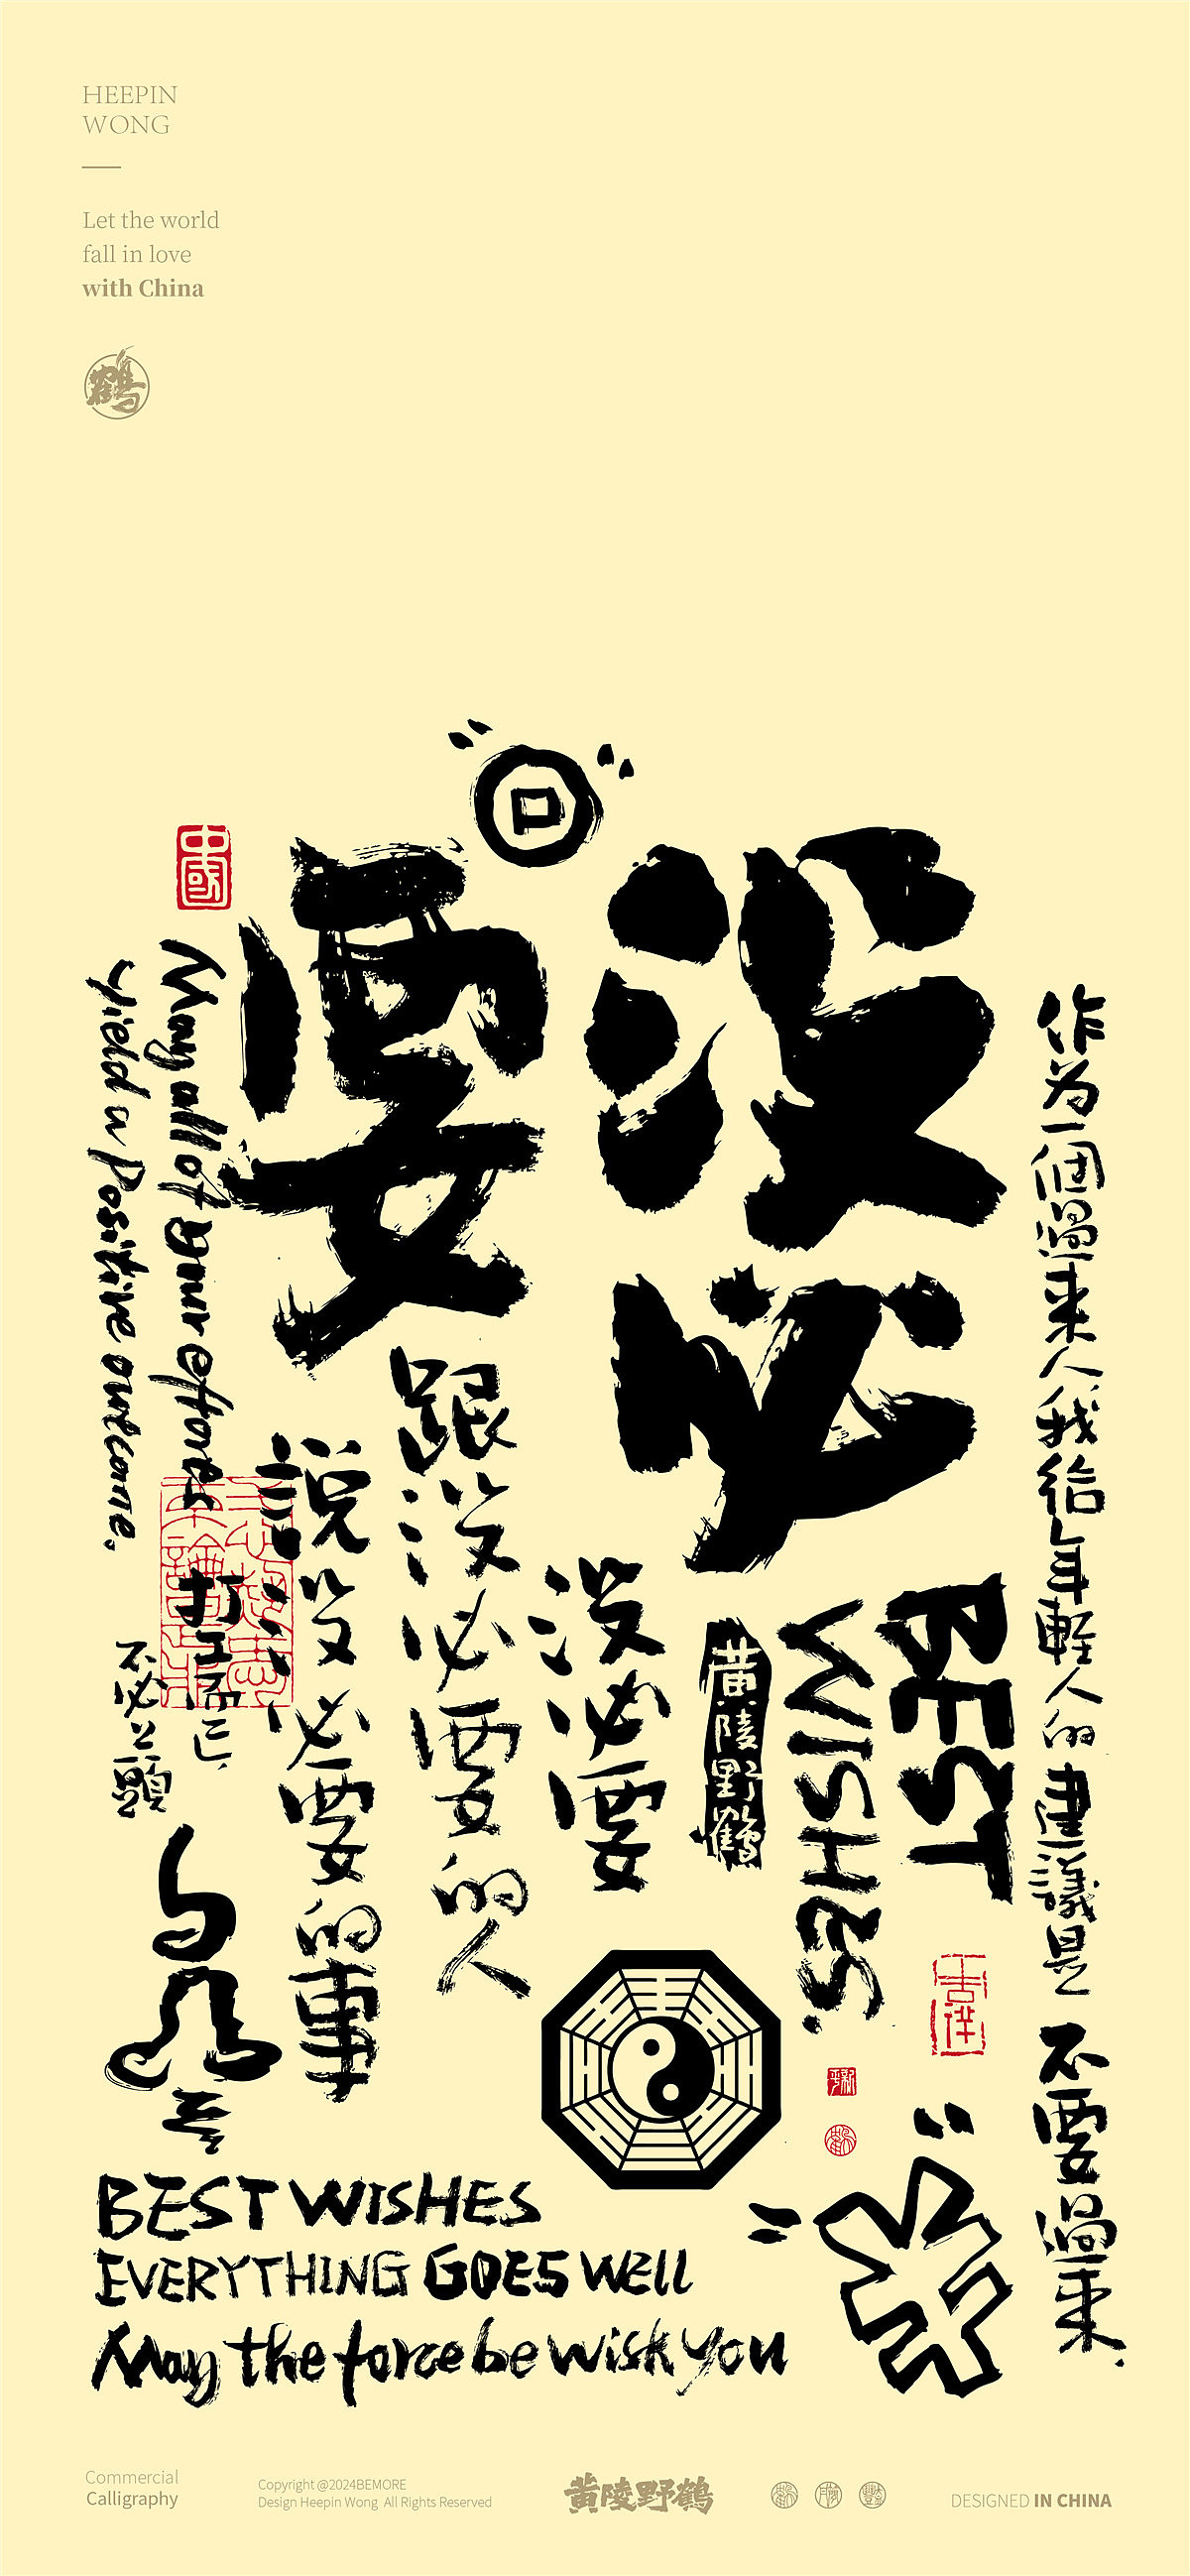 HEEPIN
WONG
Let the world
fall in love
with China
鶴
中國
没必
要
作为一個過来人我給年輕人的建議是 不要過来.
BEST
WISHES.
黄陵野鶴
没必要
跟没必要的人
説没必要的事
打工而已.
不必上頭
May all of your efforts
yield a positive outcome.
BEST WISHES
EVERYTHING GOES WELL
May the force be wish you
Commercial
Calligraphy
Copyright @2024BEMORE
Design Heepin Wong All Rights Reserved
黄陵野鶴
DESIGNED IN CHINA